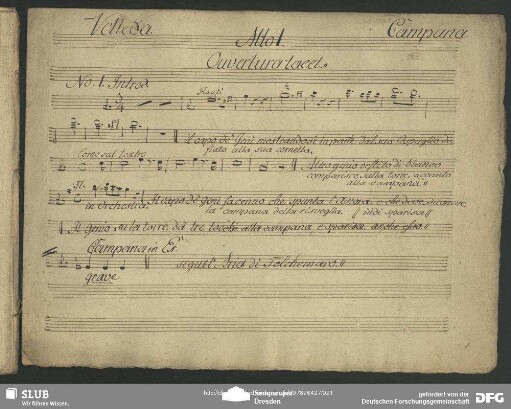 Velleda. Atto I. Campana
Ouvertura tacet.
No. 1. Introd.
Flauti
Il capo de Geni mostrandosi in parte dal suo
fiato alla sua cornetta.
Corno sul teatro
Altro genio vestito di bianco
comparisce sulla torre accanto
alla campana.
in orchestra.
Il capo de Geni fa cenno che spunta l'Aurora, e che deve suonare
la campana della sveglia. indi sparisce
Il genio sulla torre dà tre tocchi alla campana e sparisce anche esso.
Campana in E
grave
seguit: Aria di
SLUB
Wir führen Wissen.
Dresden
gefördert von der
Deutschen Forschungsgemeinschaft
DFG